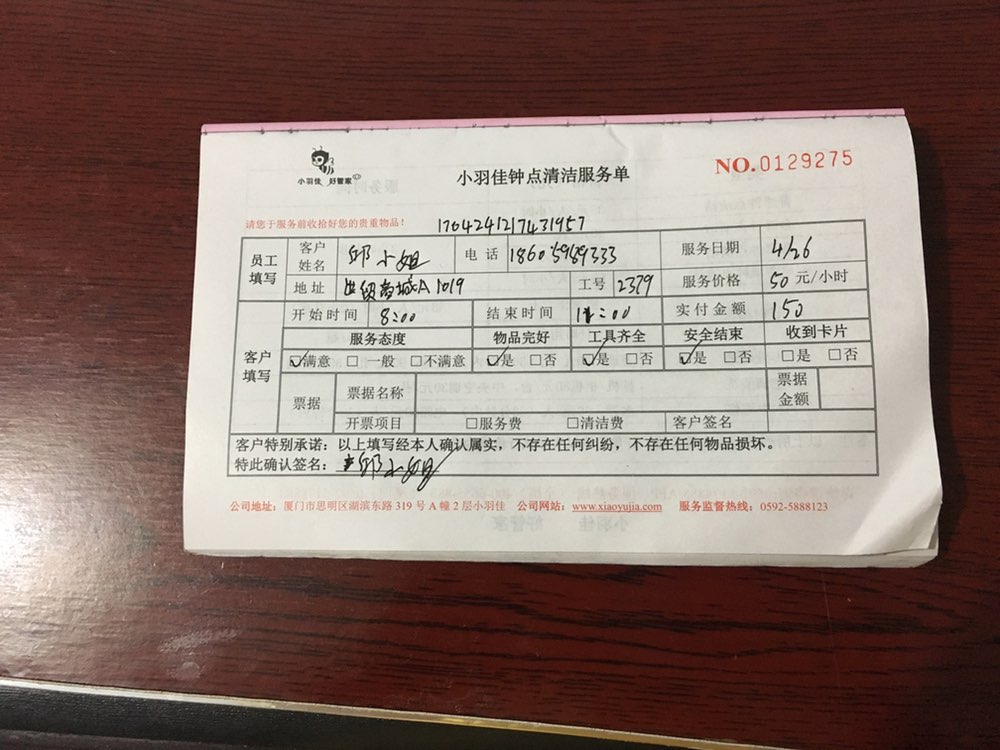 小羽佳 好管家
小羽佳钟点清洁服务单
NO.0129275
请您于服务前收拾好您的贵重物品！ 1704241217431957
员工填写 客户姓名 邱小姐 电话 18605989333 服务日期 4/26
地址 世贸商城A1019 工号 2379 服务价格 50 元/小时
客户填写 开始时间 8:00 结束时间 11:00 实付金额 150
服务态度 物品完好 工具齐全 安全结束 收到卡片
☑满意 □一般 □不满意 ☑是 □否 ☑是 □否 ☑是 □否 □是 □否
票据 票据名称 票据金额
开票项目 □服务费 □清洁费 客户签名
客户特别承诺：以上填写经本人确认属实，不存在任何纠纷，不存在任何物品损坏。
特此确认签名：邱小姐
公司地址：厦门市思明区湖滨东路 319 号 A 幢 2 层小羽佳 公司网站：www.xiaoyujia.com 服务监督热线：0592-5888123